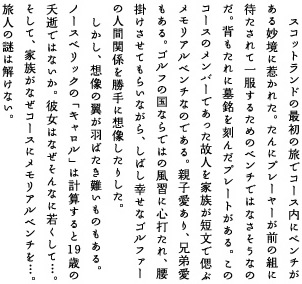 スコットランドの最初の旅でコース内にベンチが
ある妙境に惹かれた。たんにプレーヤーが前の組に
待たされて一服するためのベンチではなさそうなの
だ。背もたれに墓銘を刻んだプレートがある。この
コースのメンバーであった故人を家族が短文で偲ぶ
メモリアルベンチなのである。親子愛あり、兄弟愛
もある。ゴルフの国ならではの風習に心打たれ、腰
掛けさせてもらいながら、しばし幸せなゴルファー
の人間関係を勝手に想像したりした。
　しかし、想像の翼が羽ばたき難いものもある。
ノースベリックの「キャロル」は計算すると19歳の
夭逝ではないか。彼女はなぜそんなに若くして…。
そして、家族がなぜコースにメモリアルベンチを…。
旅人の謎は解けない。